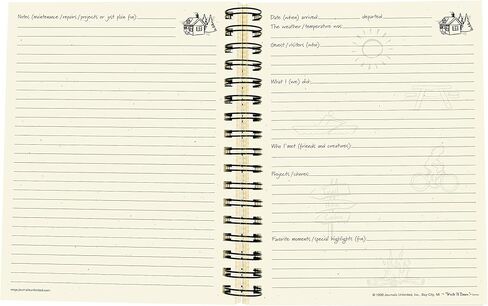 Notes (maintenance/repairs/projects or just plain fun):
www.journalsunlimited.com
Date (when) arrived departed
The weather/temperature was:
Guest/visitors (who):
What I (we) did:
Who I met (friends and creatures):
Projects/chores:
Favorite moments/special highlights (fun):
© 1999 Journals Unlimited, Inc., Bay City, MI "Write it Down"